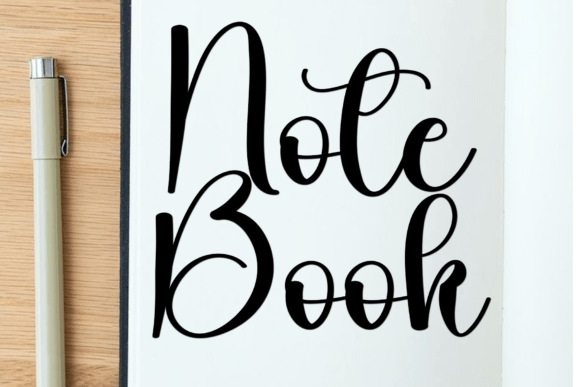 Note
Book